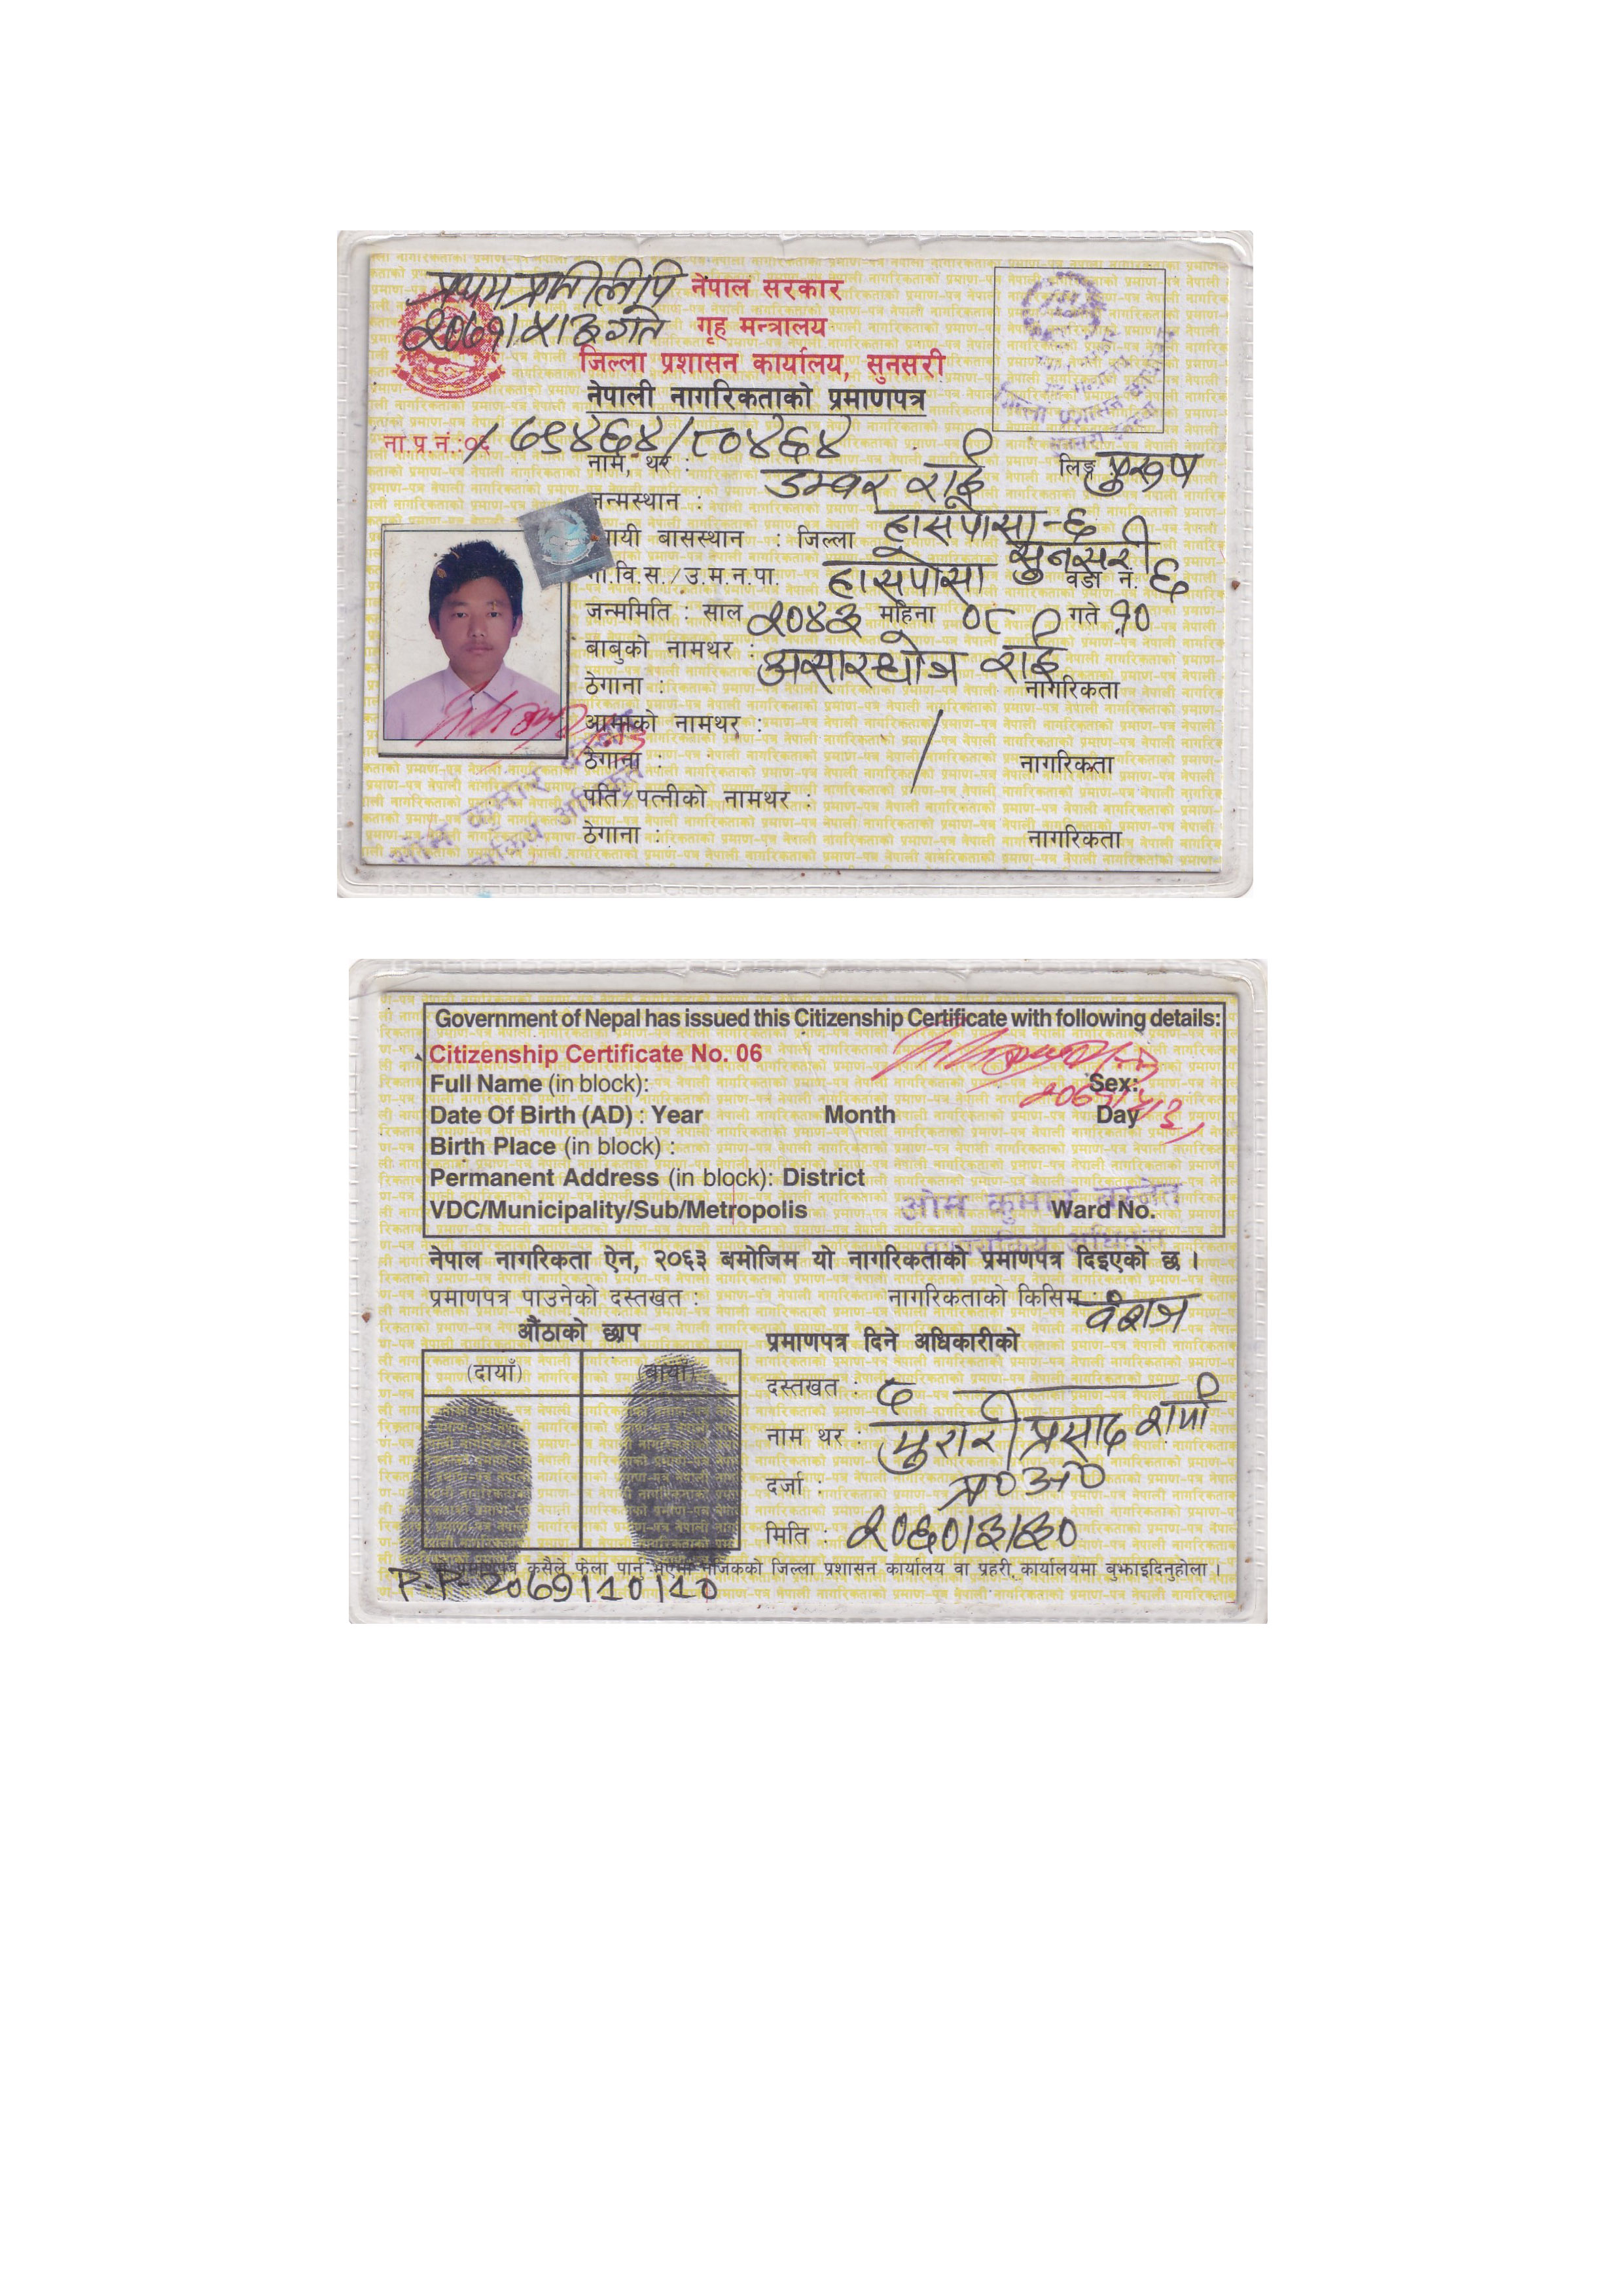 प्रथम प्रतिलिपि
२०७१।५।३ गते
नेपाल सरकार
गृह मन्त्रालय
जिल्ला प्रशासन कार्यालय, सुनसरी
नेपाली नागरिकताको प्रमाणपत्र
ना.प्र.नं.:०६/७९४६४/८०४६४
नाम, थर : डम्वर राई लिङ्ग : पुरुष
जन्मस्थान : हासपोसा-६
स्थायी बासस्थान : जिल्ला सुनसरी
गा.वि.स./उ.म.न.पा. हासपोसा वडा नं. ६
जन्ममिति : साल २०४३ महिना ०८ गते १०
बाबुको नामथर : असारधोज राई
ठेगाना : नागरिकता
आमाको नामथर :
ठेगाना : नागरिकता
पति/पत्नीको नामथर :
ठेगाना : नागरिकता
ओम कुमार
Government of Nepal has issued this Citizenship Certificate with following details:
Citizenship Certificate No. 06
Full Name (in block): Sex:
Date Of Birth (AD) : Year Month Day
Birth Place (in block) :
Permanent Address (in block): District
VDC/Municipality/Sub/Metropolis Ward No.
ओम कुमार
नेपाल नागरिकता ऐन, २०६३ बमोजिम यो नागरिकताको प्रमाणपत्र दिइएको छ ।
प्रमाणपत्र पाउनेको दस्तखत : नागरिकताको किसिम : वंशज
औंठाको छाप प्रमाणपत्र दिने अधिकारीको
(दायाँ) (बायाँ)
दस्तखत : द
नाम थर : मुरारी प्रसाद शर्मा
दर्जा : प्र०अ०
मिति : २०६०।३।३०
कसैले फेला पार्नु भएमा नजिकको जिल्ला प्रशासन कार्यालय वा प्रहरी कार्यालयमा बुझाइदिनुहोला ।
P.P-2069/10/10